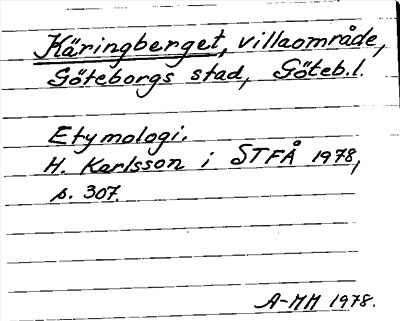 Käringberget, villaområde,
Göteborgs stad, Göteb.l.
Etymologi.
H. Karlsson i STFÅ 1978,
s. 307.
A-MM 1978.